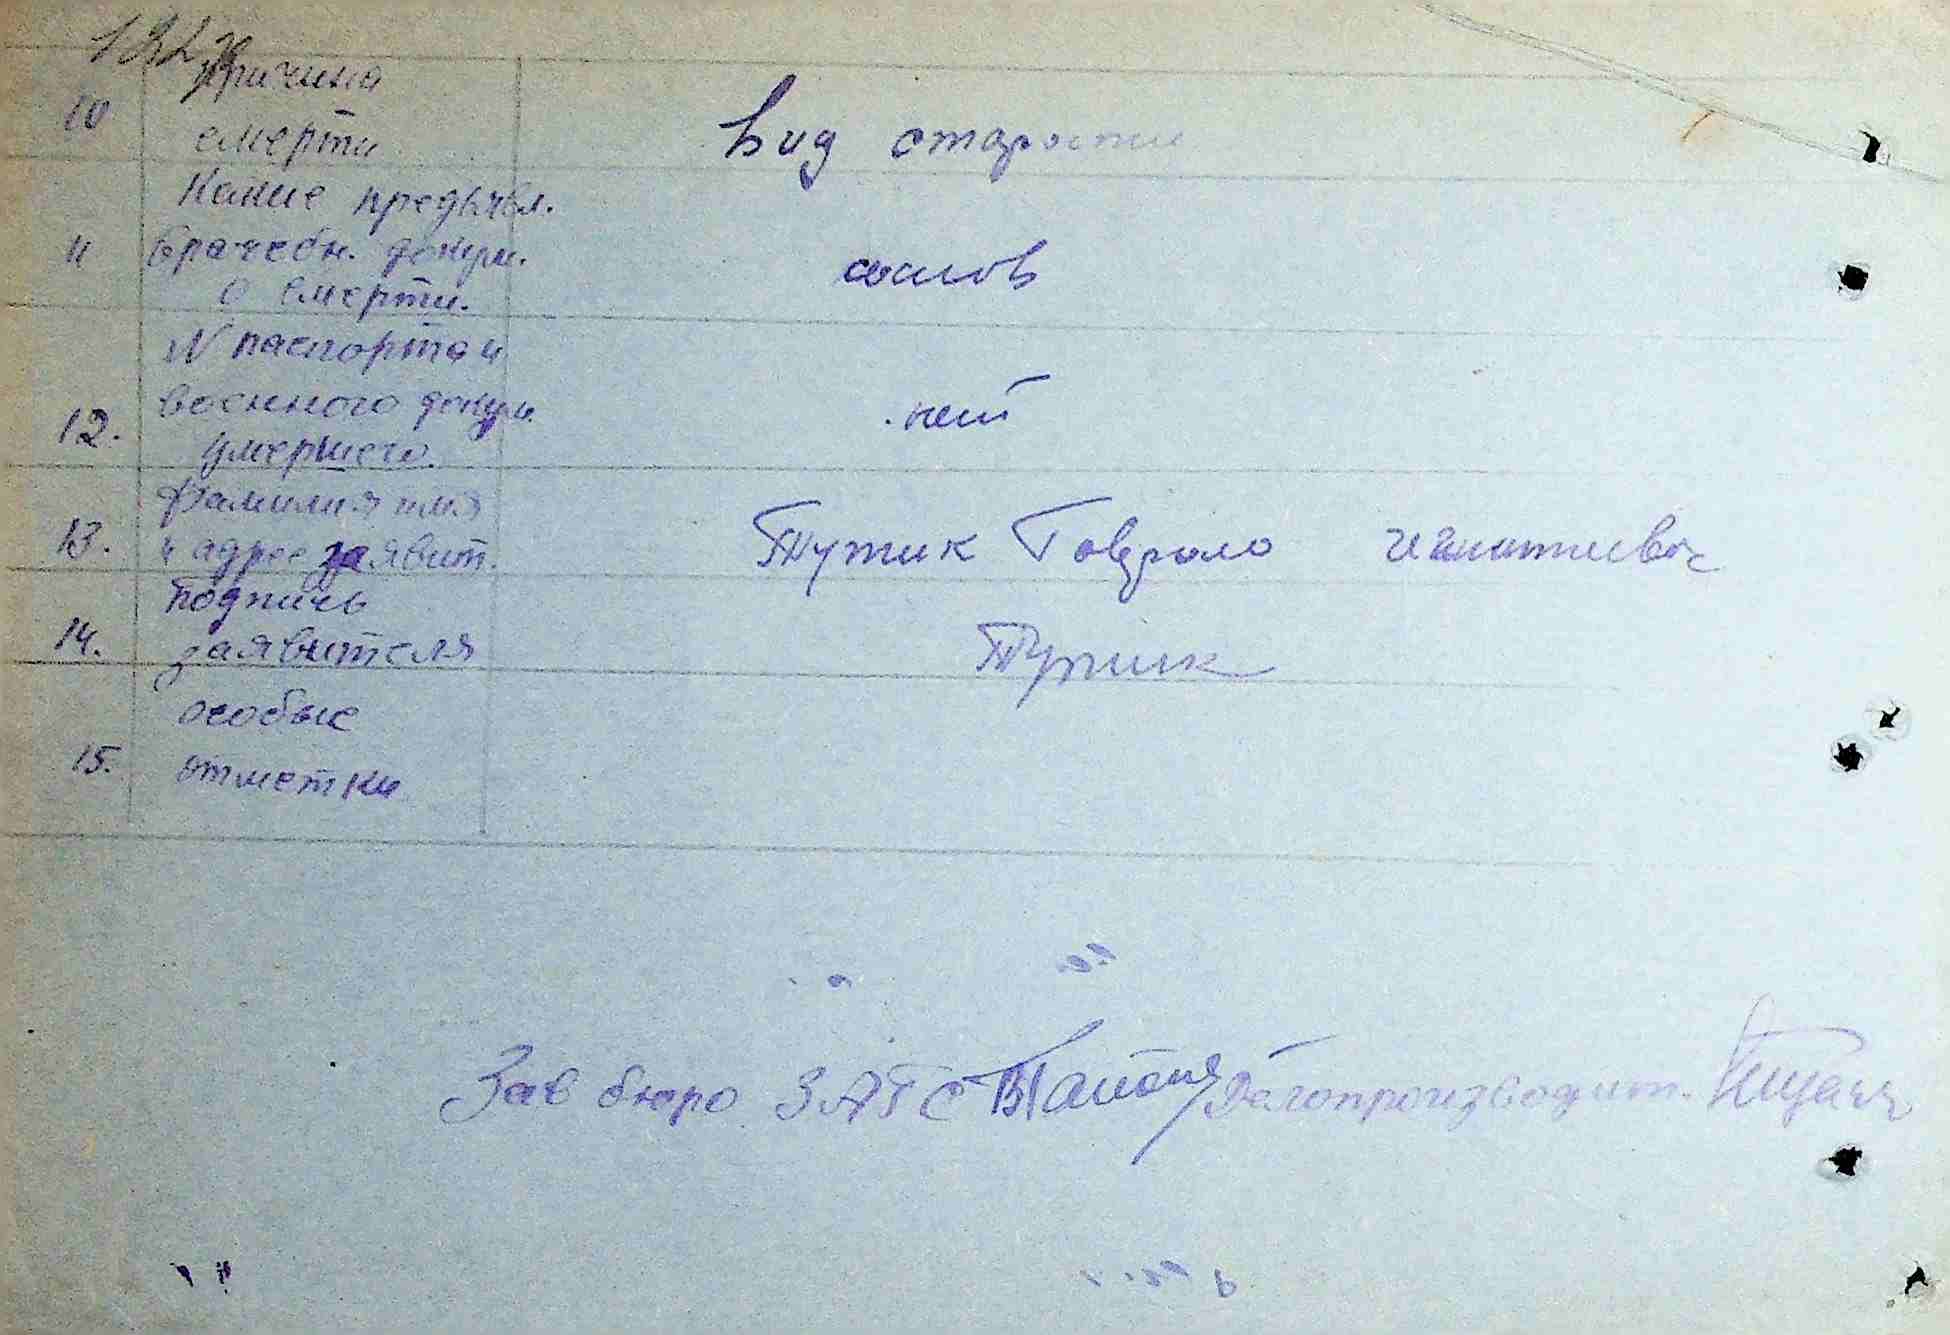 132
10 причина
смерти
Вид старости
Какие предъявл.
11 врачебн. докум.
о смерти.
слов
N паспорта и
12. военного докум.
умершего
нет
Фамилия имя
13. и адрес заявит.
Тупик Говрило
подпись
14. заявителя
Тупик
особые
15. отметки
Зав бюро ЗАГС Делопроизводит.